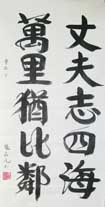 丈夫志四海
萬里猶比鄰